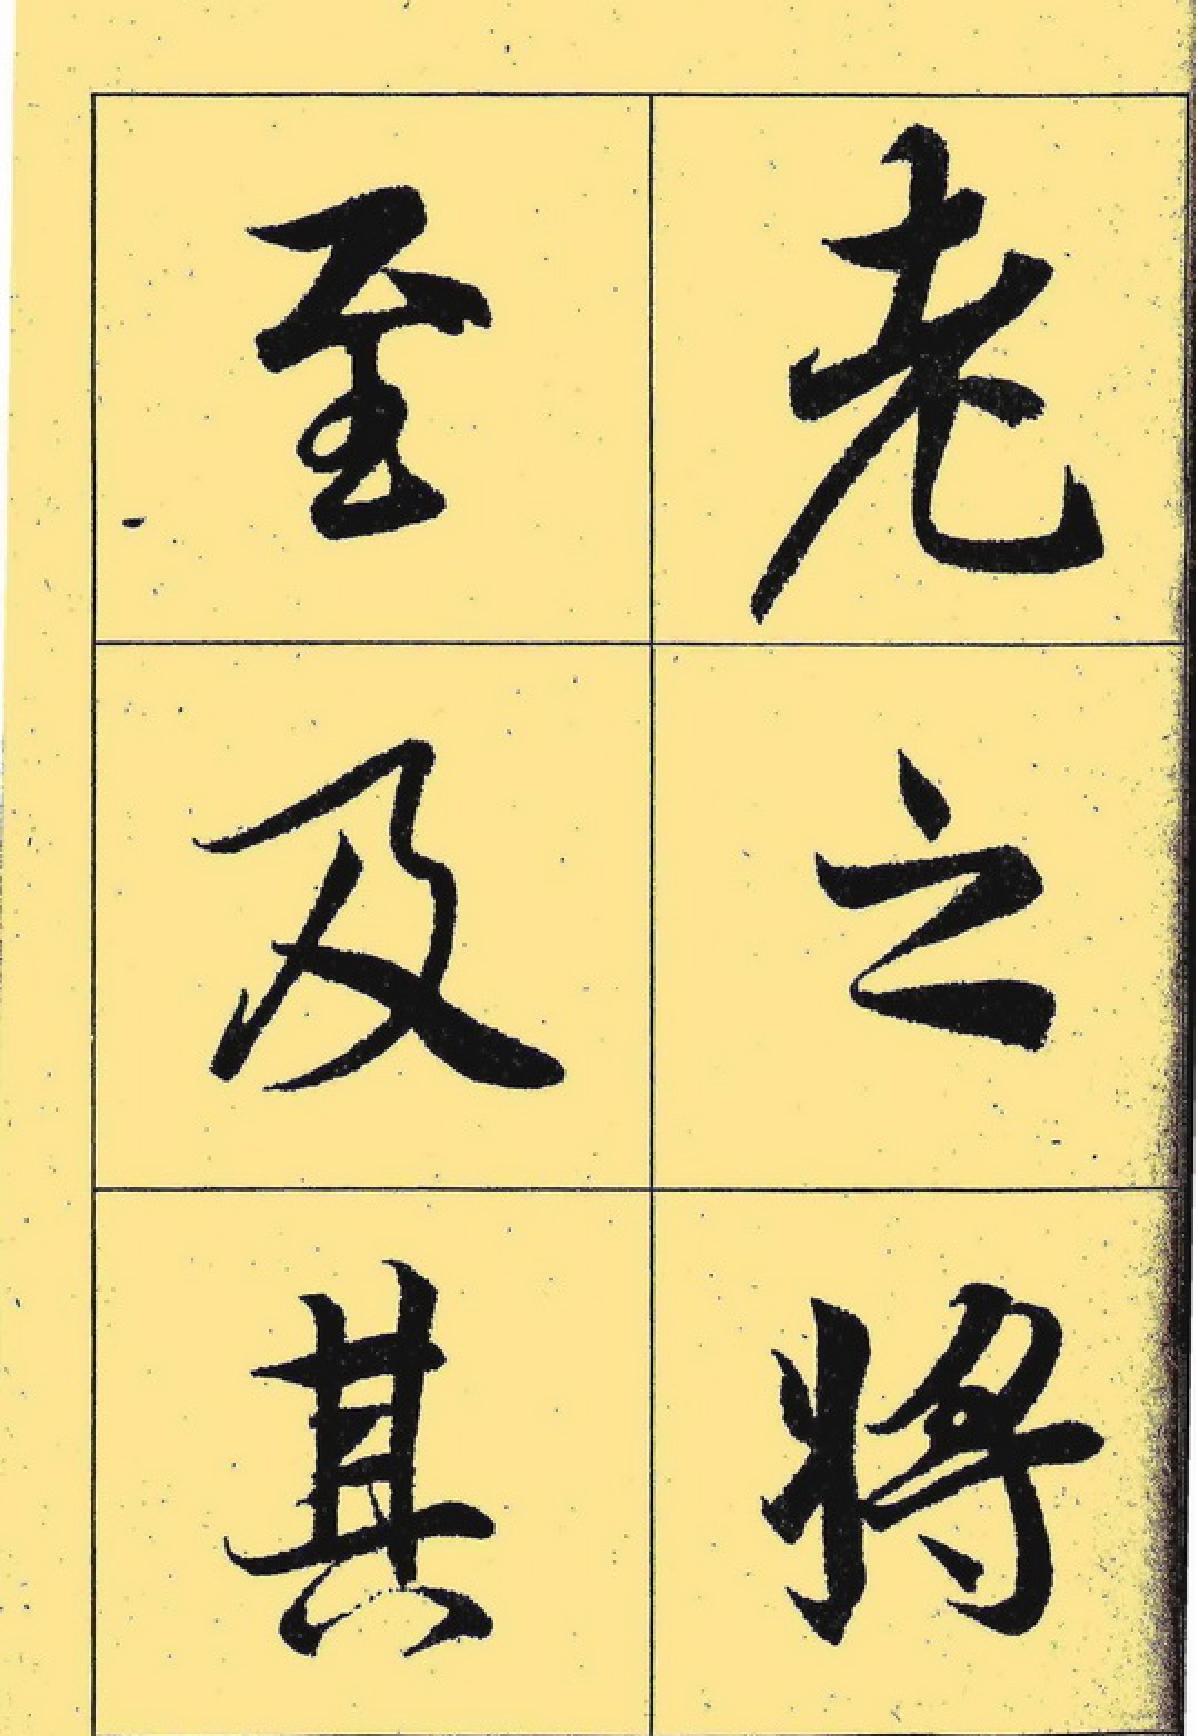 老之將
至及其